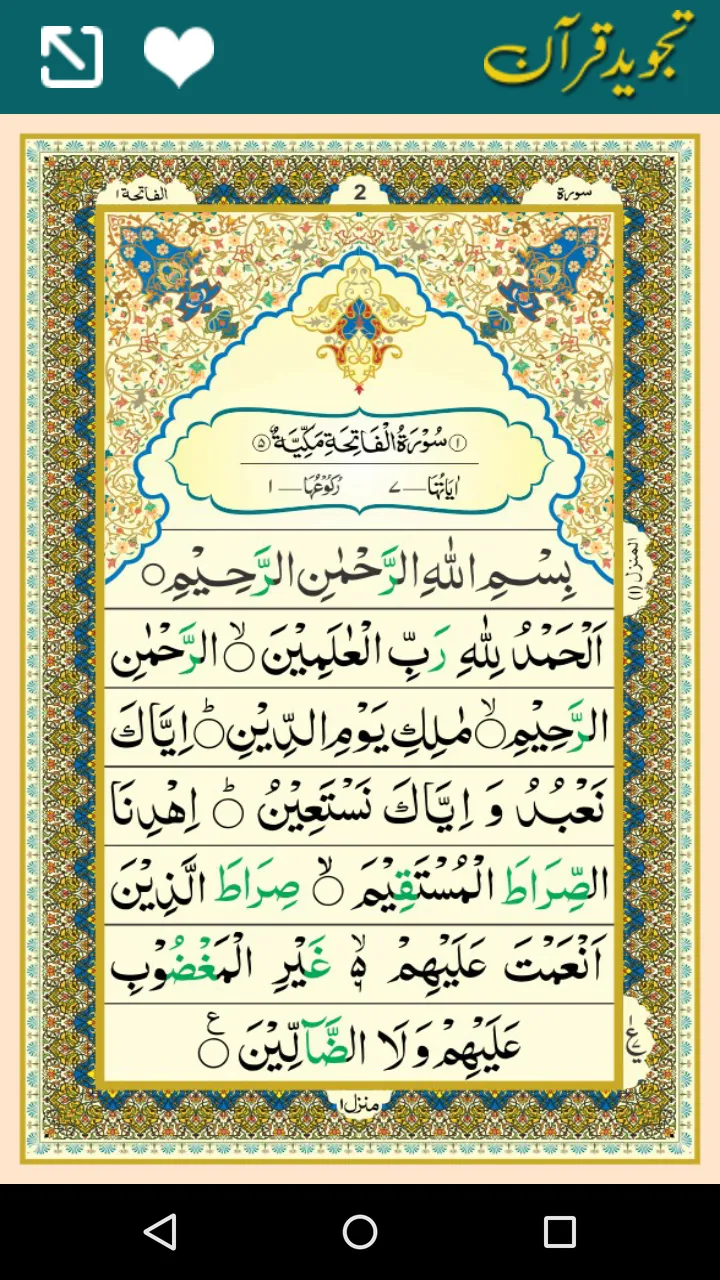 تجوید قرآن
سورۃ
2
الفاتحة ١
﴿١﴾ سُوْرَةُ الْفَاتِحَةِ مَكِّيَّةٌ ﴿٥﴾
اٰيَاتُهَا — ٧ رُكُوْعُهَا — ١
بِسْمِ اللّٰهِ الرَّحْمٰنِ الرَّحِيْمِ ○
اَلْحَمْدُ لِلّٰهِ رَبِّ الْعٰلَمِيْنَ ○ۙ الرَّحْمٰنِ
الرَّحِيْمِ ○ۙ مٰلِكِ يَوْمِ الدِّيْنِ ○ؕ اِيَّاكَ
نَعْبُدُ وَ اِيَّاكَ نَسْتَعِيْنُ ○ؕ اِهْدِنَا
الصِّرَاطَ الْمُسْتَقِيْمَ ○ۙ صِرَاطَ الَّذِيْنَ
اَنْعَمْتَ عَلَيْهِمْ ۙ۬ۙ غَيْرِ الْمَغْضُوْبِ
عَلَيْهِمْ وَلَا الضَّآلِّيْنَ ○ع
المنزل (١)
منزل ١